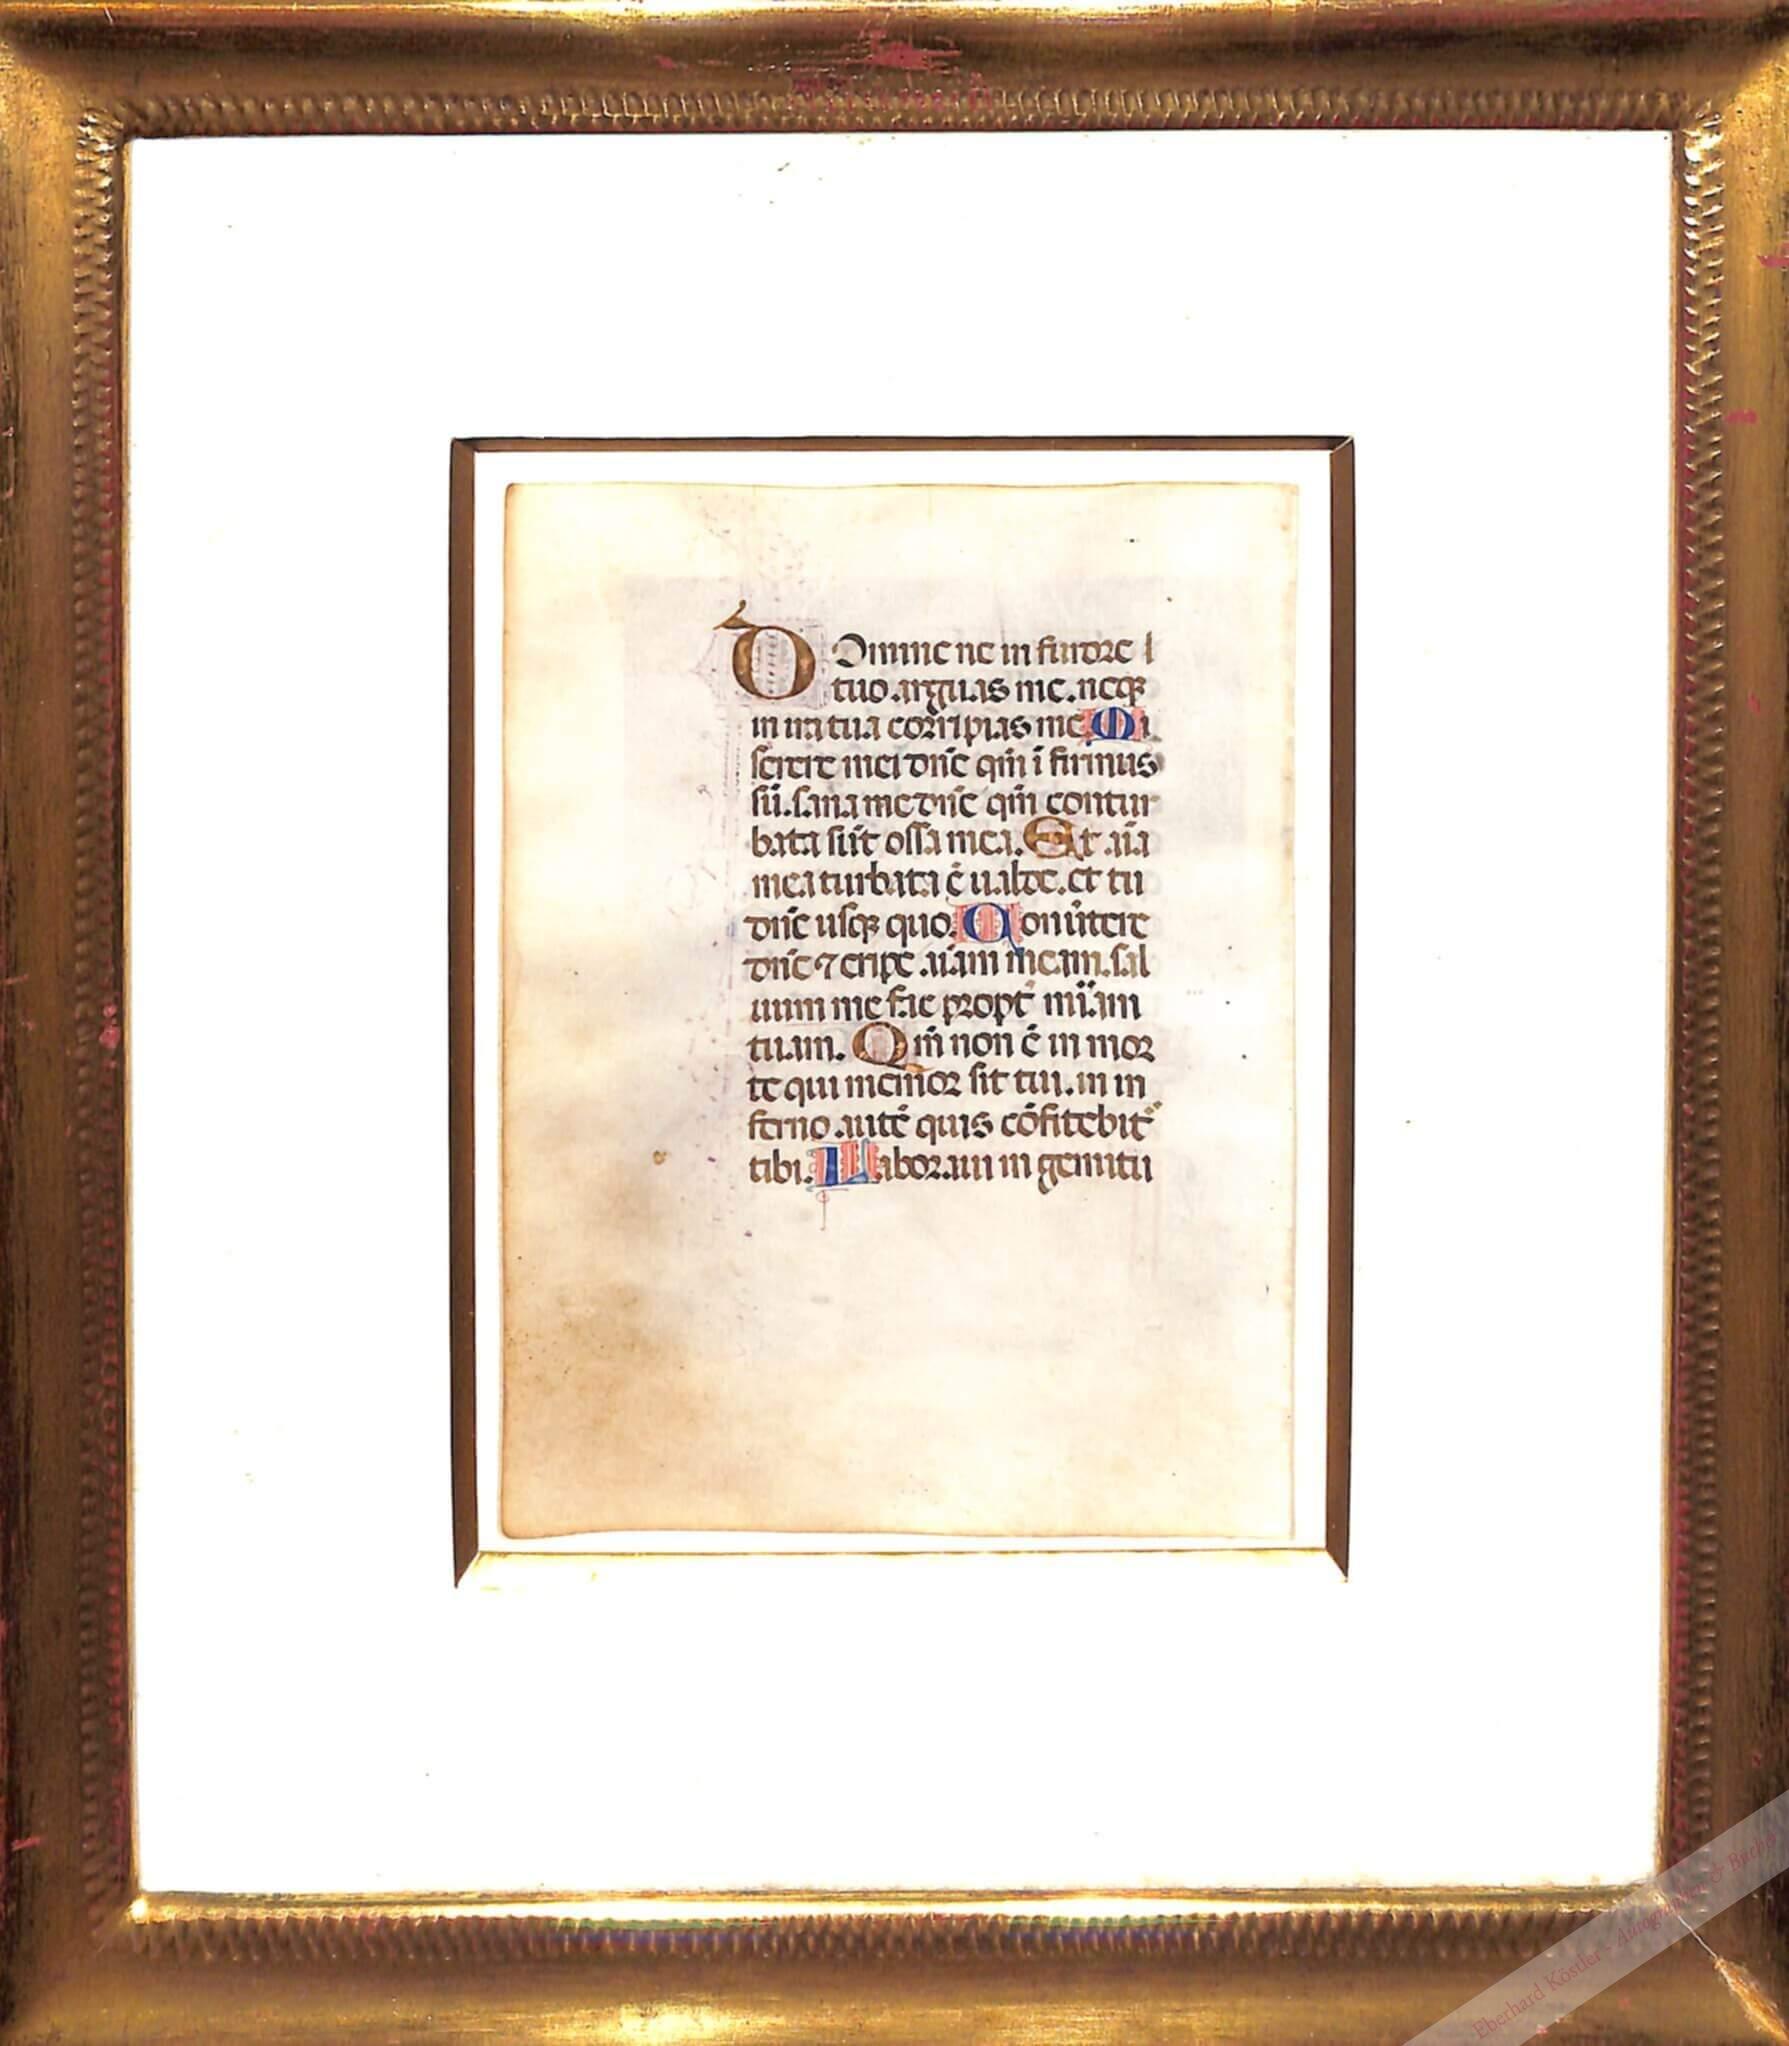 DOmine ne in furore
tuo arguas me. neqꝫ
in ira tua corripias me. Mi
serere mei dn̄e qm̄ ī firmus
sū. sana me dn̄e qm̄ contur
bata sūt ossa mea. Et aīa
mea turbata ē ualde. et tu
dn̄e usqꝫ quo. Conu̾tere
dn̄e ⁊ eripe aīam meam. sal
uum me fac propt̾ mīam
tuam. Qm̄ non ē in mor
te qui memor sit tui. in in
ferno autē quis cōfitebit̾
tibi. Laboraui in gemitu
Eberhard Köstler - Autographen & Bücher